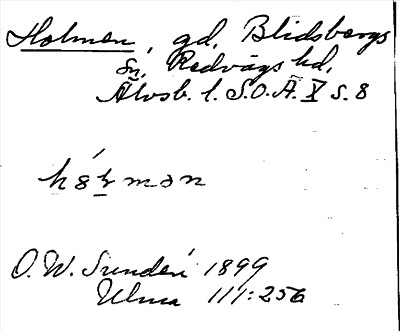 Holmen, gd, Blidsbergs
sn, Redvägs hd,
Älvsb. l. S.O.Ä. X s. 8
O. W. Sundén 1899
Ulma 111:256